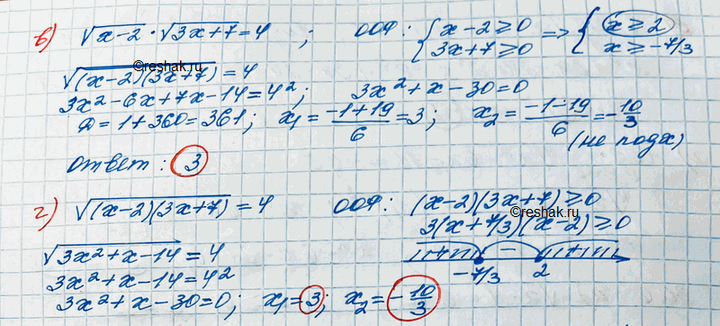 в) √(x-2) · √(3x+7) = 4 ; ООФ: { x-2 ≥ 0 3x+7 ≥ 0 => { x ≥ 2 x ≥ -7/3
√((x-2)(3x+7)) = 4
©reshak.ru
3x²-6x+7x-14=4²; 3x²+x-30=0
D=1+360=361; x₁= (-1+19)/6 =3; x₂= (-1-19)/6 = -10/3
(не подх)
Ответ: 3
г) √((x-2)(3x+7)) = 4 ООФ: (x-2)(3x+7) ≥ 0
©reshak.ru
3(x+7/3)(x-2) ≥ 0
√(3x²+x-14) = 4
+ - +
3x²+x-14=4²
-7/3 2
3x²+x-30=0; x₁=3; x₂= -10/3
©reshak.ru